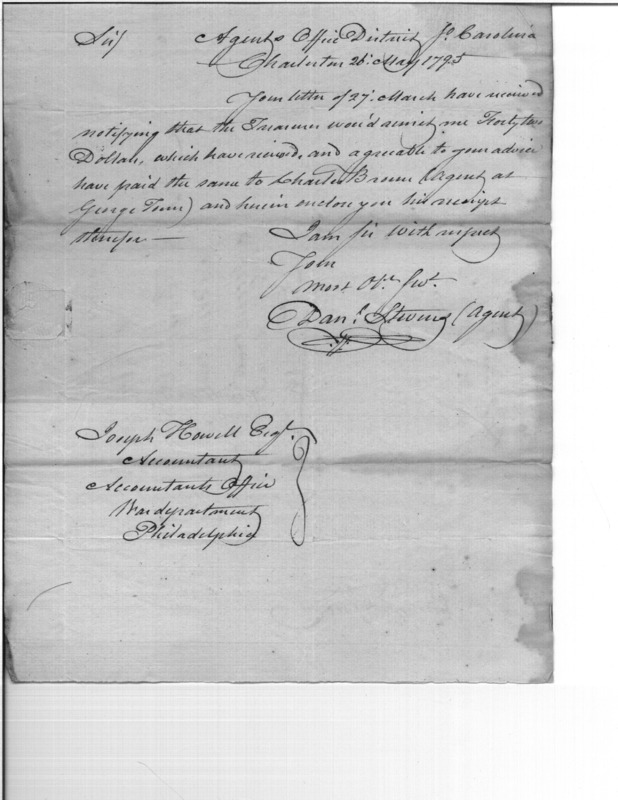 Sir/ Agents Office District So. Carolina
Charleston 26: May 1795
Your letter of 27: March have received
notifying that the Treasurer wou'd remit me Forty two
Dollars, which have receiv'd, and agreable to your advice
have paid the same to Charles Brown (Agent at
George Town) and herein enclose you his receipt
therefor —
I am Sir With respect
Your
most Obt. Servt.
Danl. Stevens (Agent)
Joseph Howell Esqr.
Accountant
Accountants Office
War department
Philadelphia